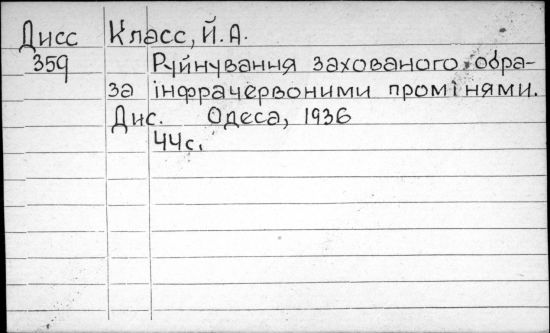 Дисс Класс, Й. А.
359 Руйнування захованого обра-
за інфрачервоними промінями.
Дис. Одеса, 1936
44с.